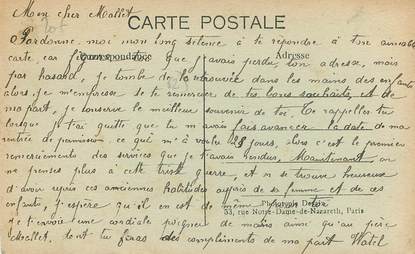 Mon cher Mallet
CARTE POSTALE
Pardonne moi mon long silence à te répondre à ton aimable
Correspondance
Adresse
carte, car figure toi que j'avais perdu ton adresse, mais
par hasard, je tombe de la retrouvée dans les mains des enfants
alors je m'empresse de te remercier de tes bons souhaits, et de
ma part, je conserve le meilleur souvenir de toi. Te rappelles tu
lorsque je t'ai quitté que tu m'avais fais avancer la date de ma
rentrée de permission, ce qui m'a valu 25 jours, alors c'est le premier
remerciements des services que je t'avais rendus, Maintenant on
ne penses plus à cette triste guerre, et on se trouve heureux
d'avoir repris ces anciennes habitudes auprès de sa femme et de ces
enfants, j'espère qu'il en est de même pour toi
Phototypie
33, rue Notre-Dame-de-Nazareth, Paris
je t'envoie une cordiale poignée de mains ainsi qu'au père
Mallet, dont tu feras des compliments de ma part